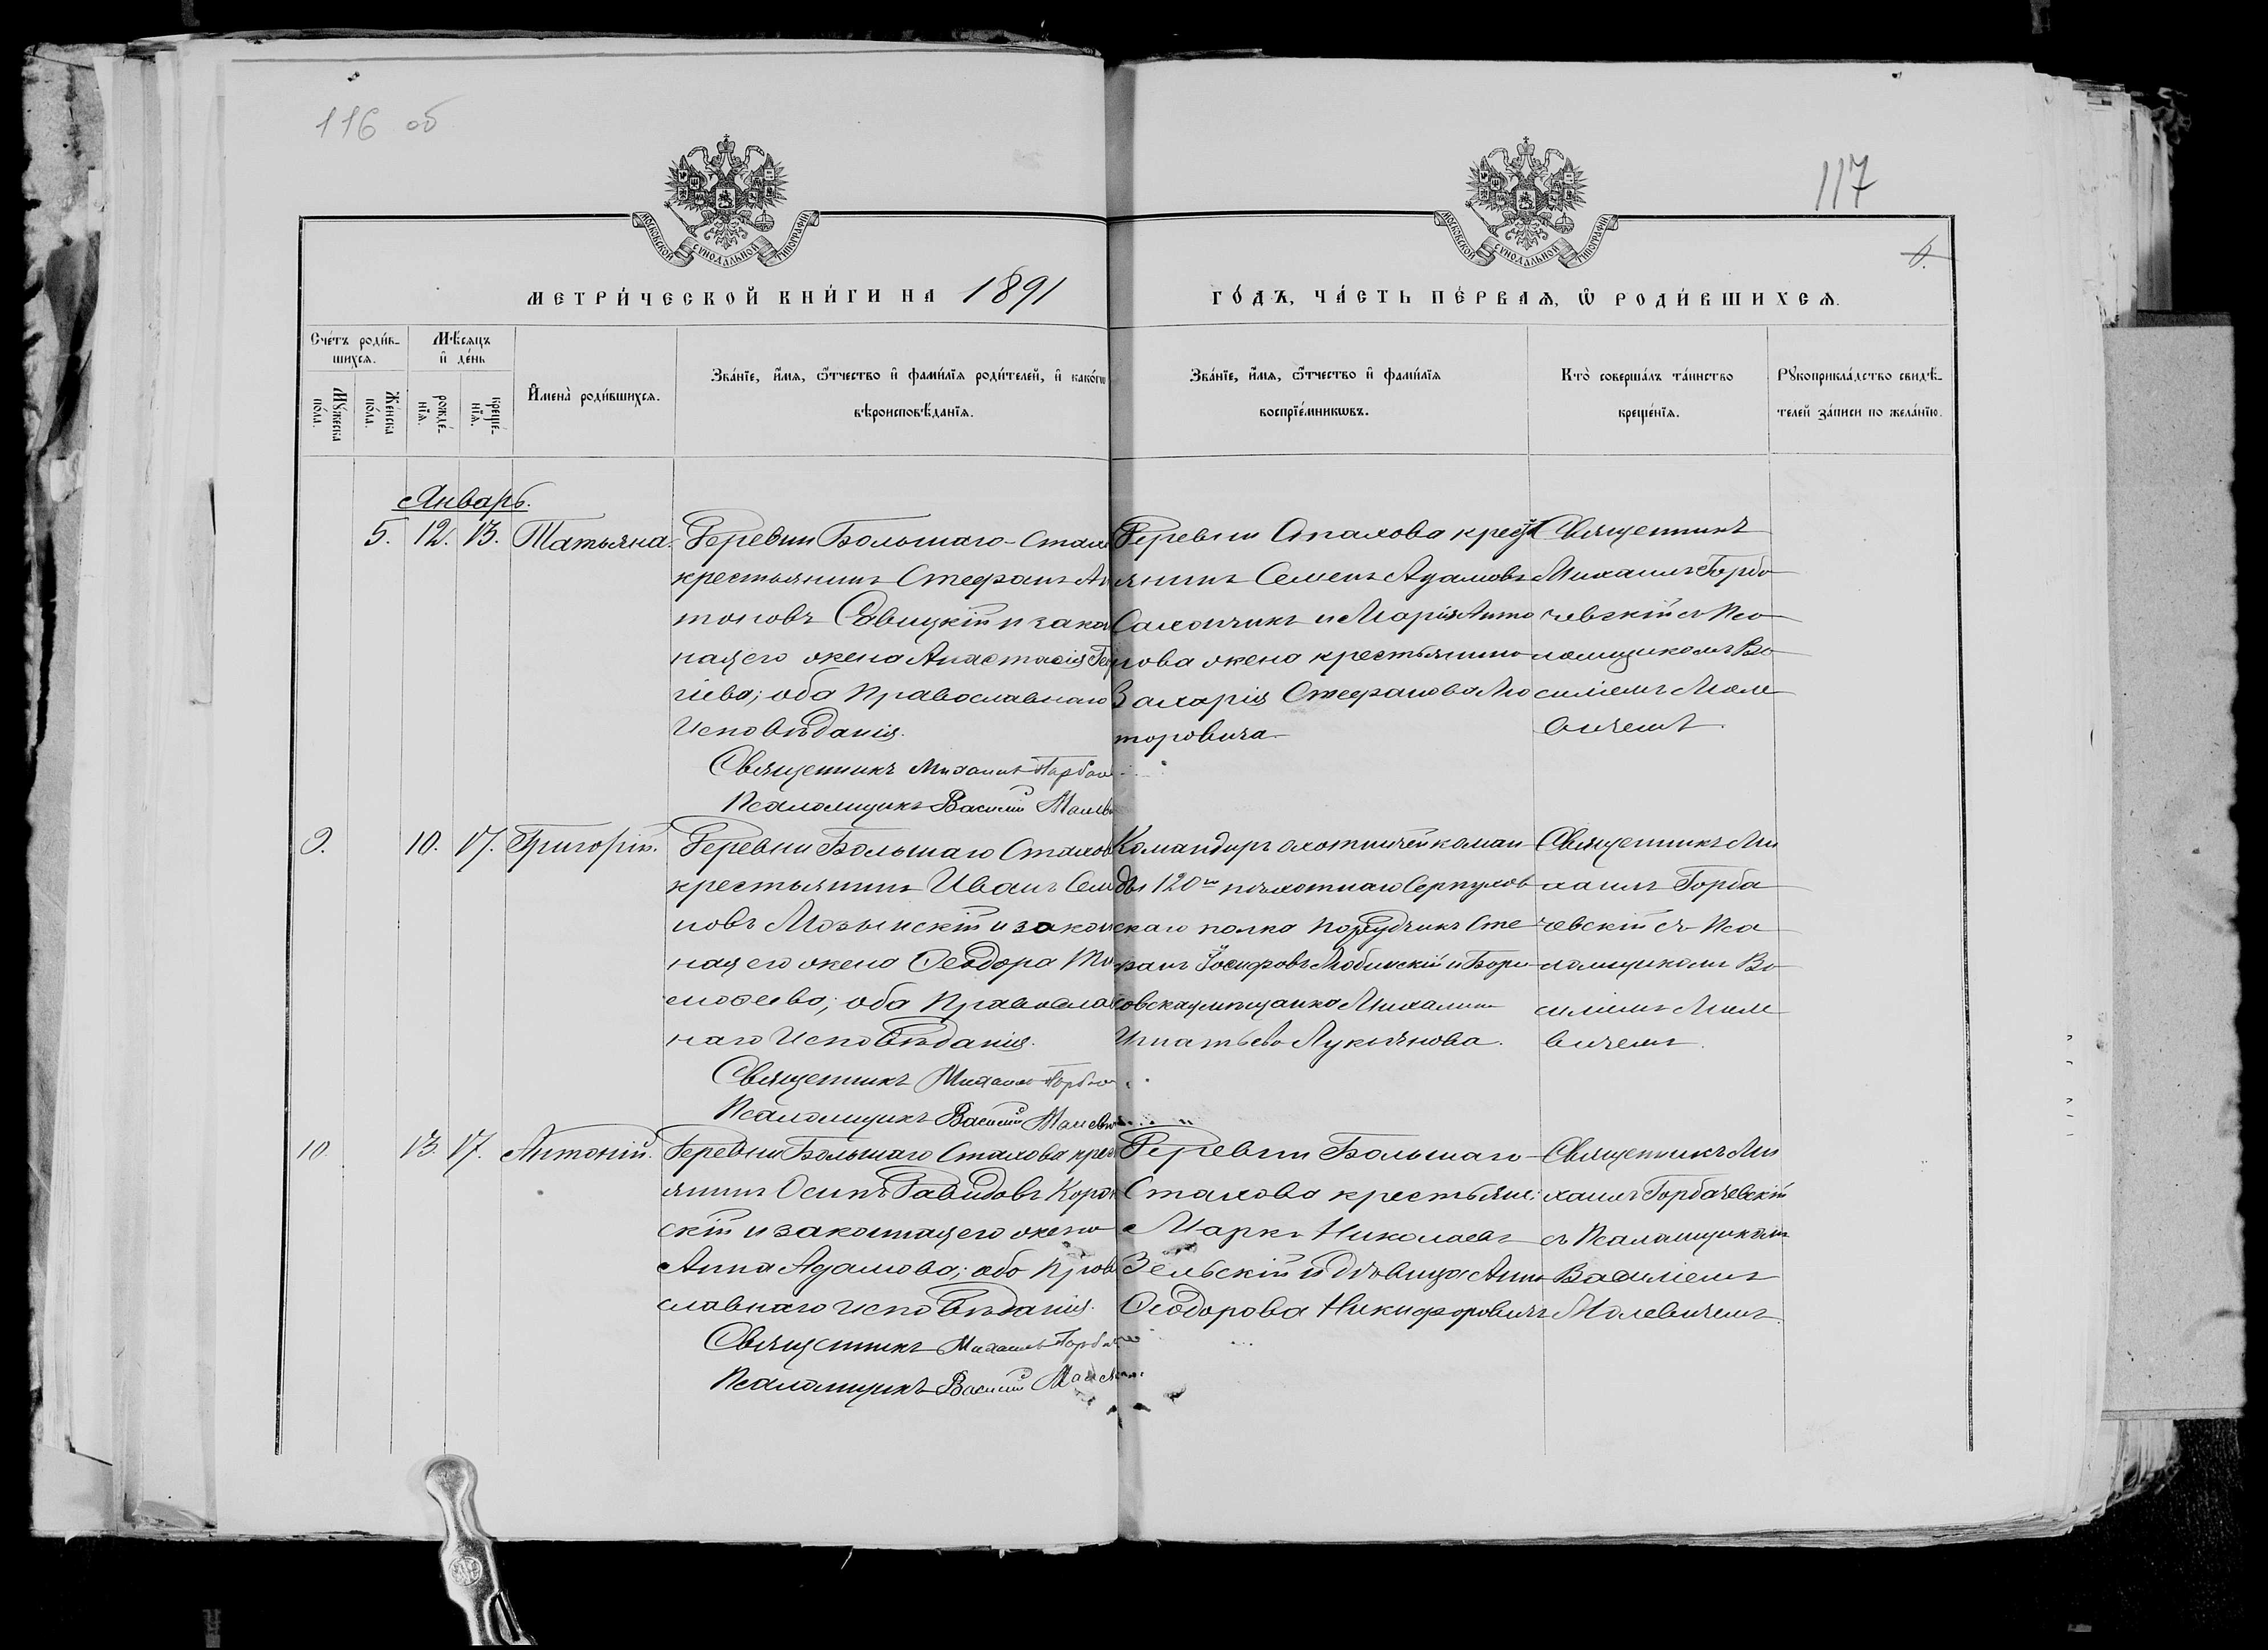 116 об
117
МОСКОВСКОЙ СѴНОДАЛЬНОЙ ТИПОГРАФІИ
МОСКОВСКОЙ СѴНОДАЛЬНОЙ ТИПОГРАФІИ
МЕТРИ́ЧЕСКОЙ КНИ́ГИ НА 1891
ГО́ДЪ, ЧА́СТЬ ПЕ́РВАѦ, Ѡ҆ РОДИ́ВШИХСѦ.
Сче́тъ роди́в-
шихсѧ.
Мѣ́сѧцъ
и҆ де́нь
Мꙋ́жеска
по́ла.
Же́нска
по́ла.
рожде́-
нїѧ.
креще́-
нїѧ.
И҆мена̀ роди́вшихсѧ.
Зва́нїе, и҆́мѧ, ѻ҆́тчество и҆ фами́лїѧ роди́телей, и҆ како́гѡ
вѣроисповѣ́данїѧ.
Зва́нїе, и҆́мѧ, ѻ҆́тчество и҆ фами́лїѧ
воспрїе́мникѡвъ.
Кто̀ соверша́лъ та́инство
креще́нїѧ.
Рꙋкоприкла́дство свидѣ́-
телей за́писи по жела́нїю.
Январь.
5. 12. 13. Татьяна.
Деревни Большаго-Стахо
крестьянинъ Стефанъ Ан
тоновъ Савицкій и закон
ная его жена Анастасія Геор
гіева; оба Православнаго
Исповѣданія.
Священникъ Михаилъ Горбач
Псаломщикъ Василій Малев
Деревни Стахова крест
янинъ Семенъ Адамовъ
Сахончикъ и Марія Анто
нова жена крестьянина
Захарія Стефанова Мо
торовича
Священникъ
Михаилъ Горба
чевскій съ Пса
ломщикомъ Ва
силіемъ Мале
вичемъ.
9. 10. 17. Григорій.
Деревни Большаго Стахов
крестьянинъ Иванъ Сем
новъ Мозынскій и закон
ная его жена Ѳеодора Ти
моѳеева; оба Православ
наго Исповѣданія.
Священникъ Михаилъ Горбач
Псаломщикъ Василій Малеви
Командиръ охотничей коман
ды 120го пѣхотнаго Серпухов
скаго полка Порудчикъ Сте
фанъ Іосифовъ Любинскій и Бори
совская мѣщанка Михалина
Игнатьева Лукіянова.
Священникъ Ми
хаилъ Горба
чевскій съ Пса
ломщикомъ Ва
силіемъ Мале
вичемъ.
10. 13. 17. Антоній.
Деревни Большаго Стахова крест
янинъ Осипъ Давидовъ Корон
скій и законная его жена
Анна Адамова; оба Право
славнаго исповѣданія.
Священникъ Михаилъ Горбач
Псаломщикъ Василій Малеви
Деревни Большаго
Стахова крестьян:
Маркъ Николаевъ
Зельскій и дѣвица Анна
Ѳеодорова Никифоровичъ
Священникъ Ми
хаилъ Горбачевскій
съ Псаломщикомъ
Василіемъ
Малевичемъ.